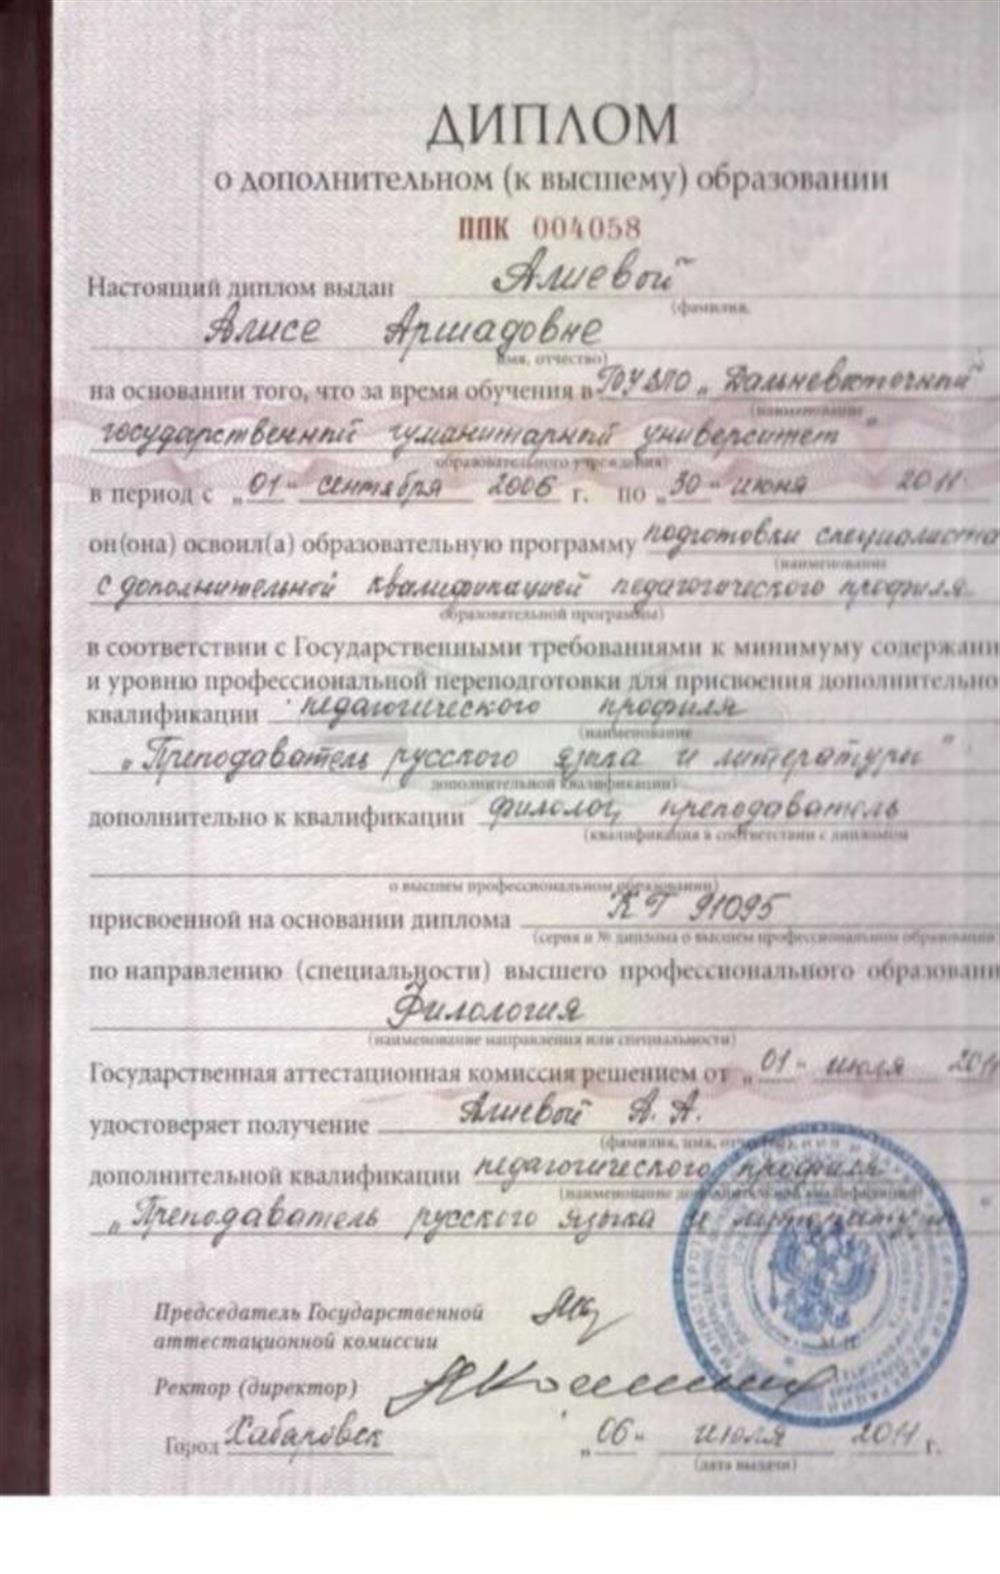 ДИПЛОМ
о дополнительном (к высшему) образовании
ППК 004058
Настоящий диплом выдан Алиевой
(фамилия,
Алисе Аршадовне
имя, отчество)
на основании того, что за время обучения в ГОУ ВПО „Дальневосточный
(наименование
государственный гуманитарный университет"
образовательного учреждения)
в период с „01" сентября 2006 г. по „30" июня 2011
он(она) освоил(а) образовательную программу подготовки специалиста
(наименование
с дополнительной квалификацией педагогического профиля
образовательной программы)
в соответствии с Государственными требованиями к минимуму содержани
и уровню профессиональной переподготовки для присвоения дополнительно
квалификации педагогического профиля
(наименование
„Преподаватель русского языка и литературы"
дополнительной квалификации)
дополнительно к квалификации филолог, преподаватель
(квалификация в соответствии с дипломом
о высшем профессиональном образовании)
присвоенной на основании диплома КГ 91095
(серия и № диплома о высшем профессиональном образовании
по направлению (специальности) высшего профессионального образовани
Филология
(наименование направления или специальности)
Государственная аттестационная комиссия решением от „01" июля 2011
удостоверяет получение Алиевой А. А.
(фамилия, имя, отчество)
дополнительной квалификации педагогического профиля
(наименование дополнительной квалификации)
„Преподаватель русского языка и литературы"
Председатель Государственной
аттестационной комиссии
М.П.
Ректор (директор)
Город Хабаровск „06" июля 2011 г.
(дата выдачи)